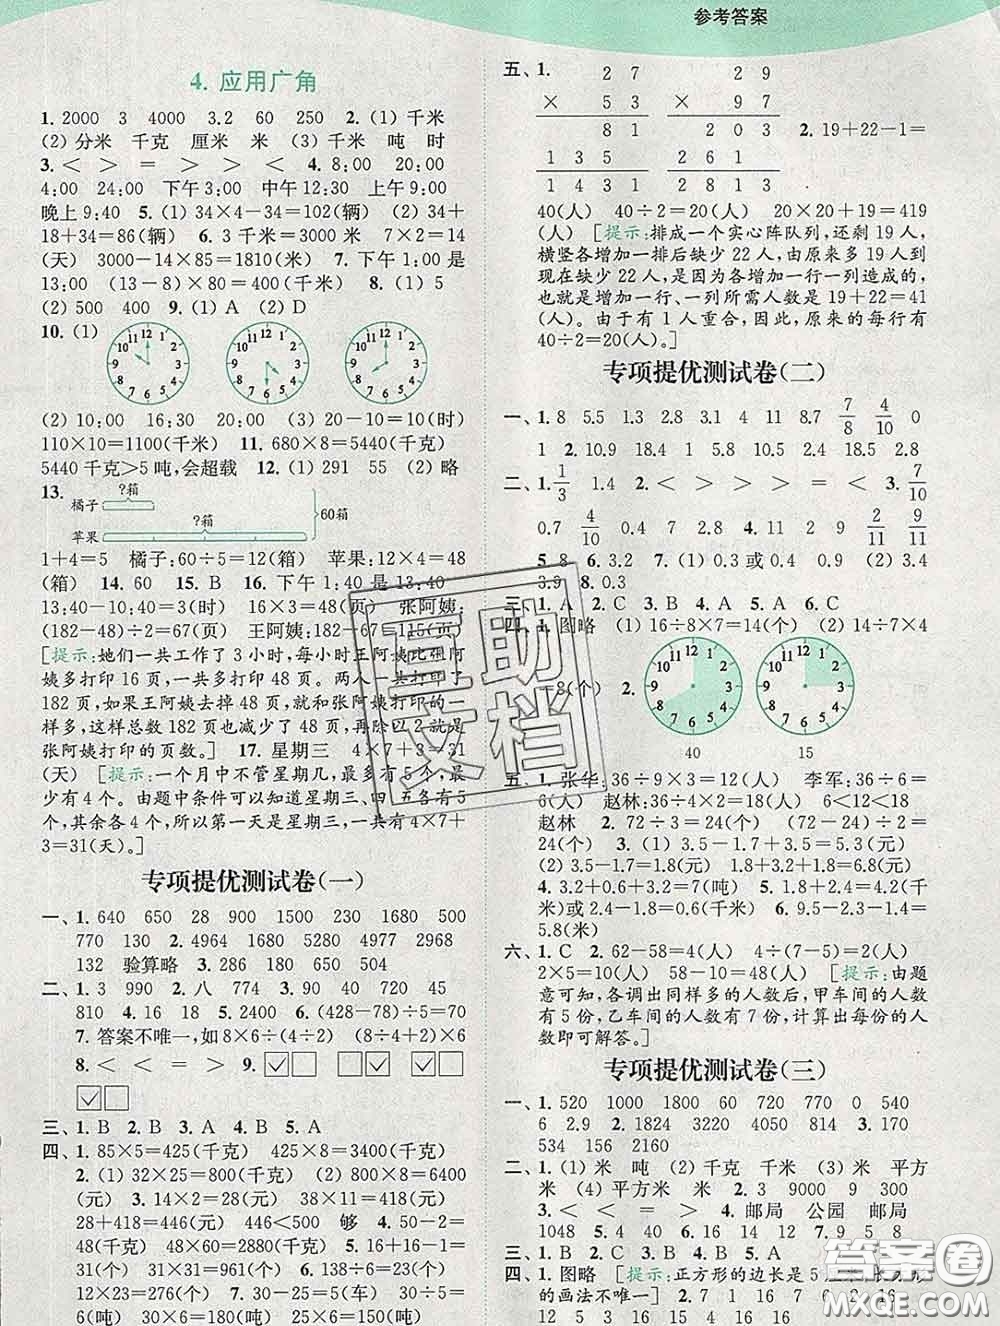 参考答案
4. 应用广角
1. 2000 3 4000 3.2 60 250 2. (1) 千米
(2) 分米 千克 厘米 米 (3) 千米 吨 时
3. < > = > > < 4. 8:00 20:00
4:00 24:00 下午 3:00 中午 12:30 上午 9:00
晚上 9:40 5. (1) 34×4-34=102(辆) (2) 34+
18+34=86(辆) 6. 3 千米=3000 米 7×2=14
(天) 3000-14×85=1810(米) 7. 下午 1:00 是
13:00 (13-8)×80=400(千米) 8. (1) 5
(2) 500 400 9. (1) A (2) D
10. (1)
(2) 10:00 16:30 20:00 (3) 20-10=10(时)
110×10=1100(千米) 11. 680×8=5440(千克)
5440 千克>5 吨,会超载 12. (1) 291 55 (2) 略
13.
?箱
橘子
?箱
60箱
苹果
1+4=5 橘子:60÷5=12(箱) 苹果:12×4=48
(箱) 14. 60 15. B 16. 下午 1:40 是 13:40
13:40-10:40=3(时) 16×3=48(页) 张阿姨:
(182-48)÷2=67(页) 王阿姨:67+48=115(页)
[提示:她们一共工作了 3 小时,每小时王阿姨比张阿
姨多打印 16 页,一共多打印 48 页。两人一共打印了
182 页,如果王阿姨去掉 48 页,就和张阿姨打印的一
样多,这样总数 182 页也减少了 48 页,再除以 2 就是
张阿姨打印的页数。] 17. 星期三 4×7+3=31
(天) [提示:一个月中不管星期几,最多有 5 个,最
少有 4 个。由题中条件可以知道星期三、四、五各有 5
个,其余各有 4 个。所以第一天是星期三,一共有 4×7+
3=31(天)。]
专项提优测试卷(一)
一、1. 640 650 28 900 1500 230 1680 500
770 130 2. 4964 1680 5180 4977 2968
132 验算略 3. 286 180 530
二、1. 3 990 2. 八 774 3. 90 40 720 45
810 4. 16 18 5. 2400 6. (428-78)÷5=70
7. 答案不唯一,如 8×6÷(4÷2) (8÷4÷2)×6
8. < < = > 9. ✓
✓
三、1. B 2. B 3. A 4. B 5. A
四、1. 85×5=425(千克) 425×8=3400(千克)
2. (1) 32×25=800(千克) (2) 800×8=6400
(元) 3. 14×2=28(元) 11×38=418(元)
28+418=446(元) 446<500 够 4. 50-2=
48(千克) 48×60=2880(千克) 5. 16+16-1=
31(个) 31×31=961(个) 6. 12×23=276(吨)
12×23=276(吨) 7. 30-25=5(车) 30÷5=
6(吨) 30×6=180(吨) 25×6=150(吨)
五、1.
2 7
× 5 3
8 1
1 3 5
1 4 3 1
2 9
× 9 7
2 0 3
2 6 1
2 8 1 3
2. 19+22-1=
40(人) 40÷2=20(人) 20×20+19=419
(人) [提示:排成一个实心阵队列,还剩 19 人,
横竖各增加一排后缺少 22 人,由原来多 19 人到
现在缺少 22 人,是因为各增加一行一列造成的,
也就是增加一行、一列所需人数是 19+22=41
(人)。由于有 1 人重合,因此,原来的每行有
40÷2=20(人)。]
专项提优测试卷(二)
一、1. 8 5.5 1.3 2.8 3.1 4 11 8.7 7/8 4/10 0
1 2. 10.9 18.4 1 5.8 10.5 2.4 18.5 2.8
二、1. 1/3 1.4 2. < > > > = < 3. 7/10
0.7 4/10 0.4 7 2.8 4. 11 2 9 2/11 9/11
5. 8 6. 3.2 7. (1) 0.3 或 0.4 0.9 (2) 3.4
3.9 8. 0.3
三、1. A 2. C 3. B 4. A 5. A 6. C
四、1. 图略 (1) 16÷8×7=14(个) (2) 14÷7×4
=8(个) 2.
40 15
五、1. 张华:36÷9×3=12(人) 李军:36÷6=
6(人) 赵林:36÷4×2=18(人) 6<12<18
赵林 2. 72÷3=24(个) (72-24)÷2=
24(个) 3. (1) 3.5-1.7+1.8+1.5=5.1(元)
(2) 3.5-1.7=1.8(元) 3.5+1.8+1.5=6.8(元)
4. 3.2+0.6+3.2=7(吨) 5. 2.4+1.8=4.2(千
米)或 2.4-1.8=0.6(千米) 6. 9-1.4-1.8=
5.8(米)
六、1. C 2. 62-58=4(人) 4÷(7-5)=2(人)
2×5=10(人) 58-10=48(人) [提示:由题
意可知,各调出同样多的人数后,甲车间的人数
有 5 份,乙车间的人数有 7 份,计算出每份的人
数即可解答。]
专项提优测试卷(三)
一、1. 520 1000 1800 60 720 770 0 540
6 2.9 2. 1824 3220 4050 1288 3. 170
534 156 2160
二、1. (1) 米 吨 (2) 千克 千米 (3) 米 平方
米 (4) 平方米 米 2. 3 9000 9 3
3. < < = > 4. 邮局 公园 邮局
1048 5. 4 40 6. 16 14 12 7. 9 5 8
三、1. B 2. C 3. B 4. B 5. C
四、1. 图略 [提示:正方形的边长是 5 厘米,长方形
的画法不唯一] 2. 7 16 6 7 2 16
三助文档
答案圈
MXQE.COM